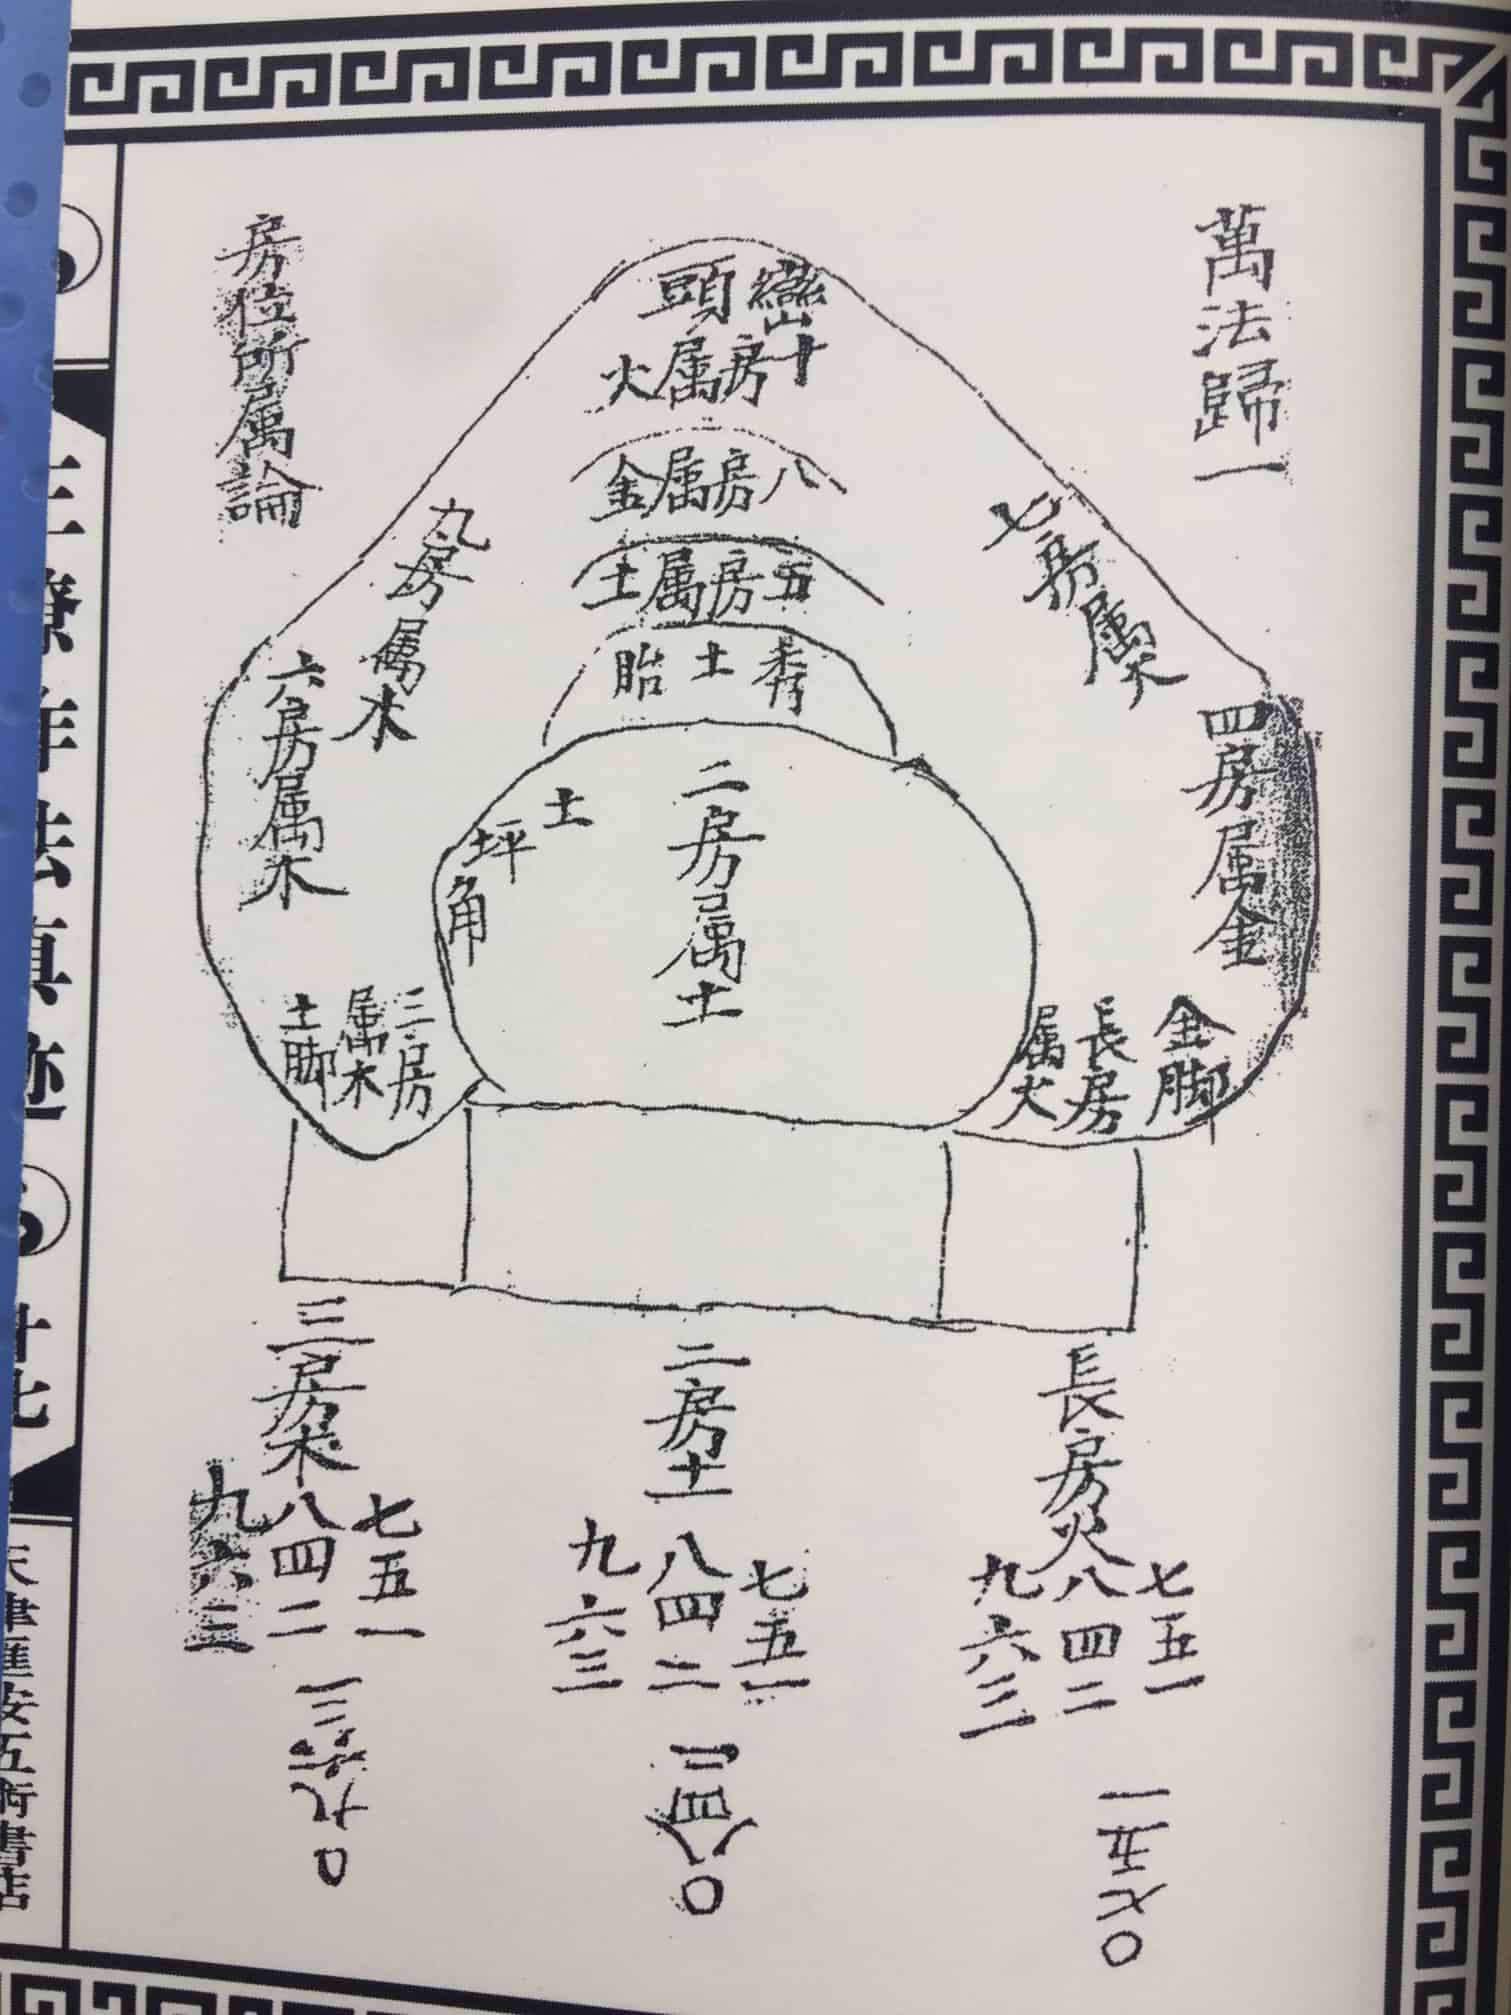 萬法歸一
房位所属論
巒頭
十房属火
八房属金
五房属土
秀土胎
七房属木
九房属水
四房属金
六房属木
二房属土
土坪角
金脚
長房属火
三房属木
土脚
長房火
七五一
八四二
九六三
一五七〇
二房土
七五一
八四二
九六三
二四八〇
三房木
七五一
八四二
九六三
三六九〇
天津匯安五術書店